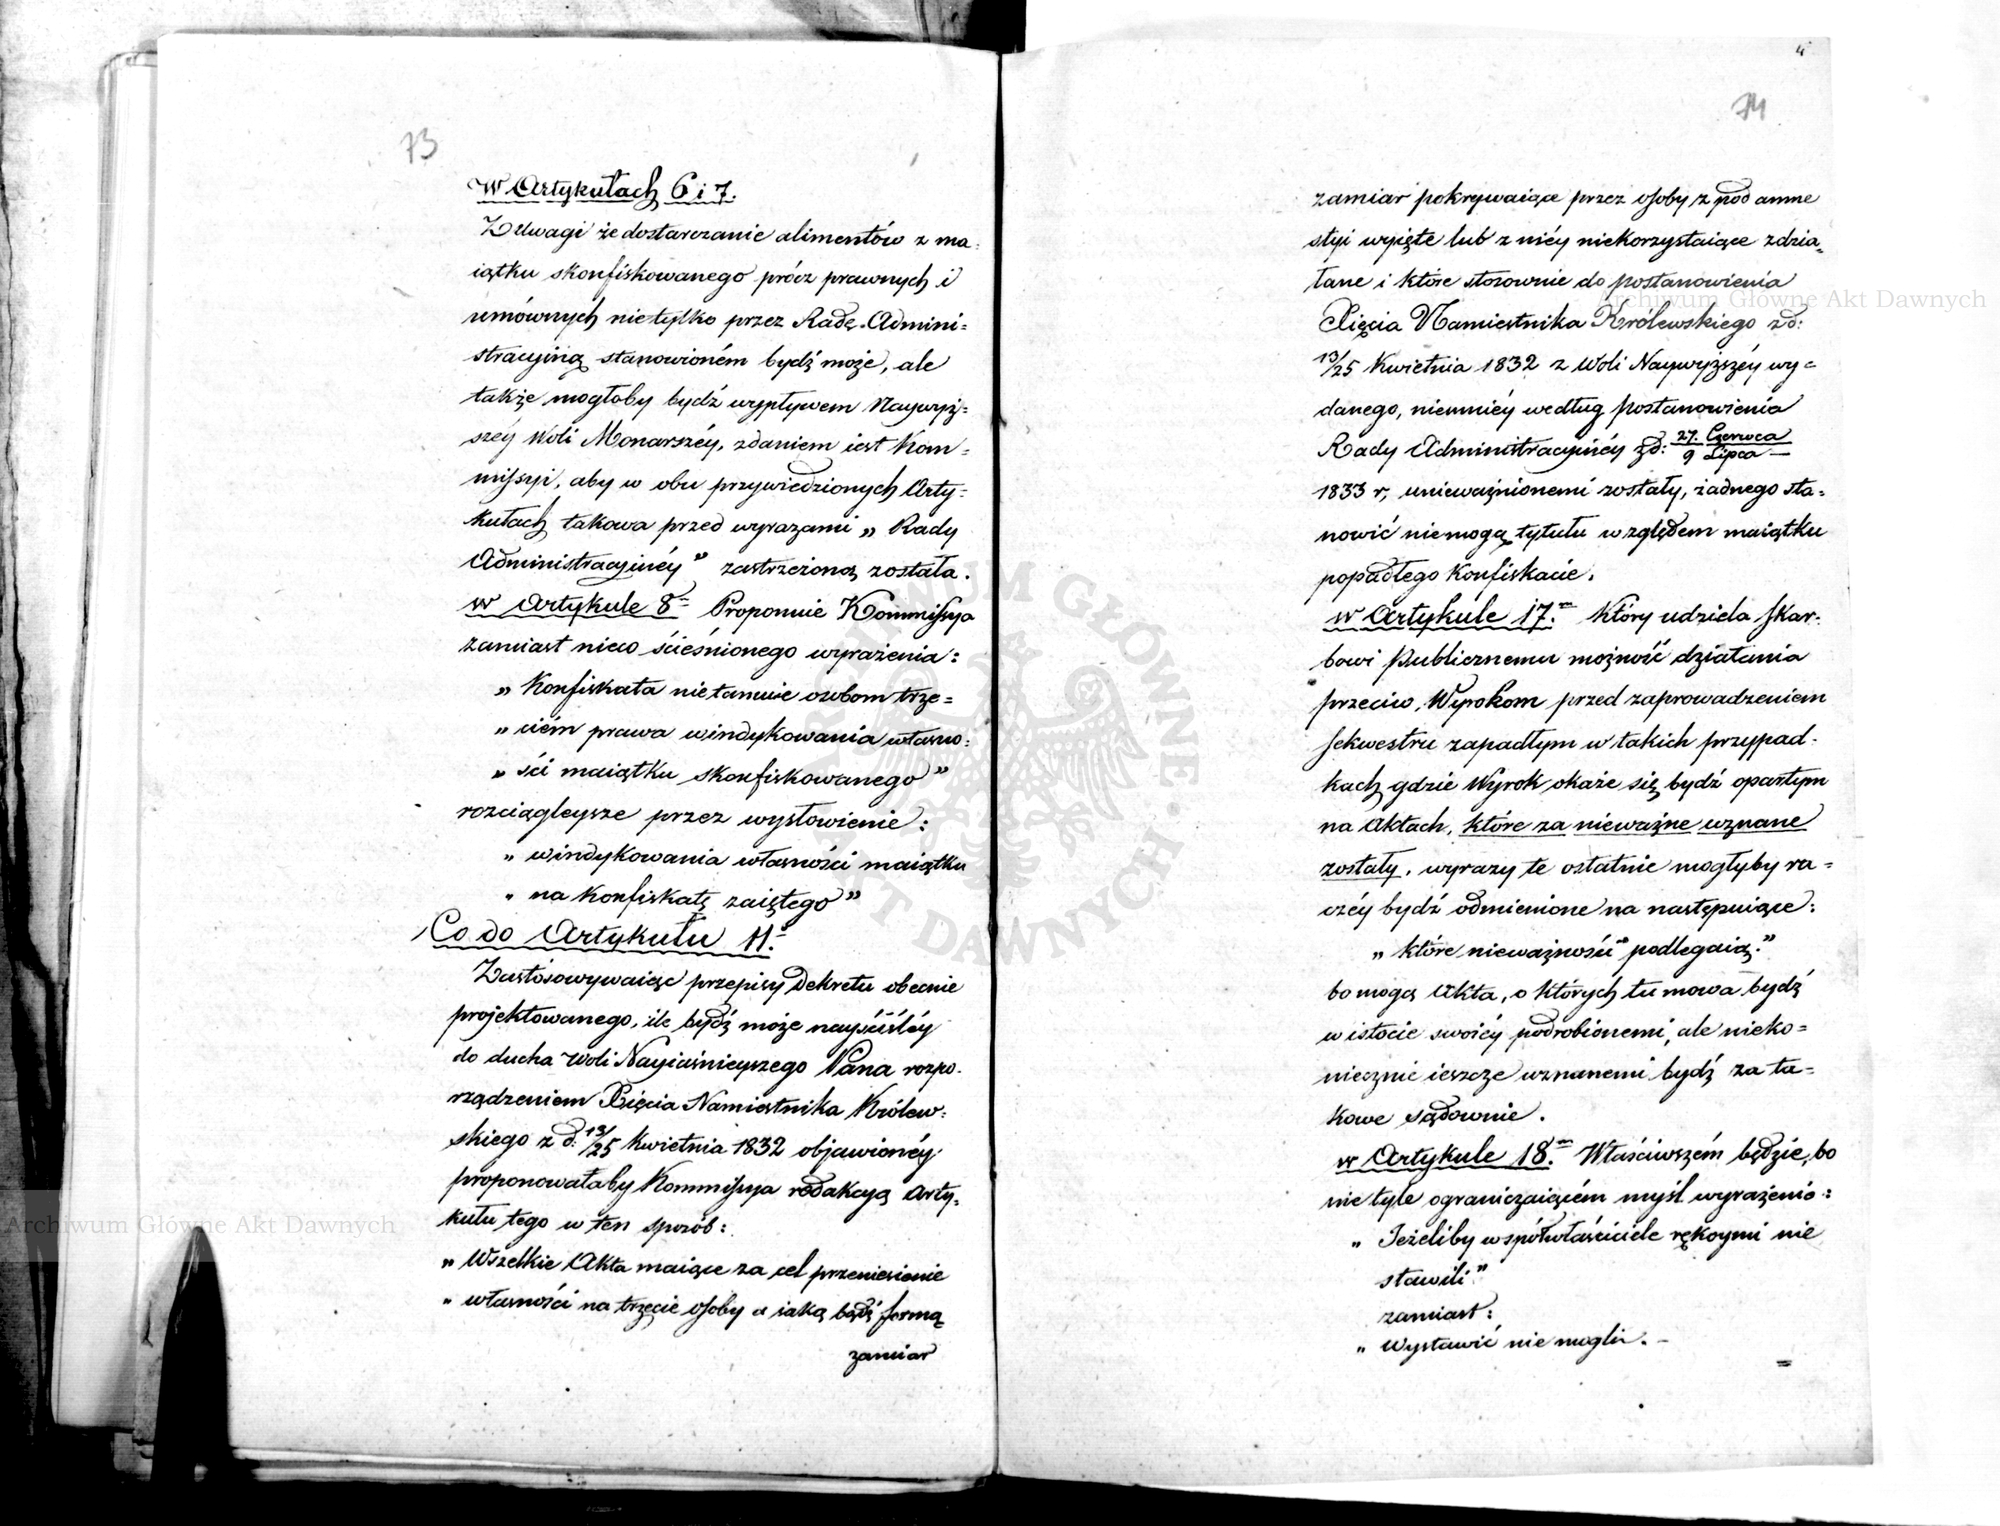 73
W Artykułach 6 i 7.
Z Uwagi że dostarczanie alimentów z ma-
iątku skonfiskowanego prócz prawnych i
umównych nietylko przez Radę Admini=
stracyiną stanowioném bydź może, ale
także mogłoby bydź wypływem Naywyż=
széy Woli Monarszéy, zdaniem iest Kom=
missyi, aby w obu przywiedzionych Arty=
kułach takowa przed wyrazami „ Rady
Administracyinéy" zastrzeżoną została.
w Artykule 8m Proponuie Kommissya
zamiast nieco ścieśnionego wyrażenia:
„ Konfiskata nietamuie osobom trze=
„ ciém prawa windykowania własno=
„ ści maiątku skonfiskowanego"
rozciągleysze przez wysłowienie:
„ windykowania własności maiątku
„ na Konfiskatę zaiętego"
Co do Artykułu 11.
Zastósowywaiąc przepisy Dekretu obecnie
projektowanego, ile bydź może nayściśléy
do ducha Woli Nayiaśnieyszego Pana rozpo-
rządzeniem Xięcia Namiestnika Królew=
skiego z d: 13/25 Kwietnia 1832 objawionéy
proponowałaby Kommissya redakcyą Arty=
kułu tego w ten sposób:
„ Wszelkie Akta maiące za cel przeniesienie
„ własności na trzecie osoby a iaką bądź formą
zamiar
4
74
zamiar pokrywaiące przez osoby z pod amne
styi wyięte lub z niéy niekorzystaiące zdzia=
łane i które stosownie do postanowienia
Xięcia Namiestnika Królewskiego z d:
13/25 Kwietnia 1832 z Woli Naywyższéy wy=
danego, niemniéy według postanowienia
Rady Administracyinéy z d: 27. Czerwca / 9 Lipca
1833 r, unieważnionemi zostały, żadnego sta=
nowić niemogą tytułu względem maiątku
popadłego Konfiskacie.
w Artykule 17.m który udziela skar-
bowi Publicznemu możność działania
przeciw Wyrokom przed zaprowadzeniem
sekwestru zapadłym w takich przypad-
kach gdzie Wyrok okaże się bydź opartym
na Aktach, które za nieważne uznane
zostały, wyrazy te ostatnie mogłyby ra=
czéy bydź odmienione na następuiące:
„ które nieważności podlegaią."
bo mogą Akta, o których tu mowa bydź
w istocie swoiéy podrobionemi, ale nieko=
niecznie ieszcze uznanemi bydź za ta=
kowe sądownie.
w Artykule 18.m Właściwszém będzie, bo
nie tyle ograniczaiącém myśl wyrażenie:
„ Jeżeliby współwłaściciele rękoymi nie
stawili"
zamiast:
„ Wystawić nie mogli. –
Archiwum Główne Akt Dawnych
Archiwum Główne Akt Dawnych
ARCHIWUM GŁÓWNE AKT DAWNYCH